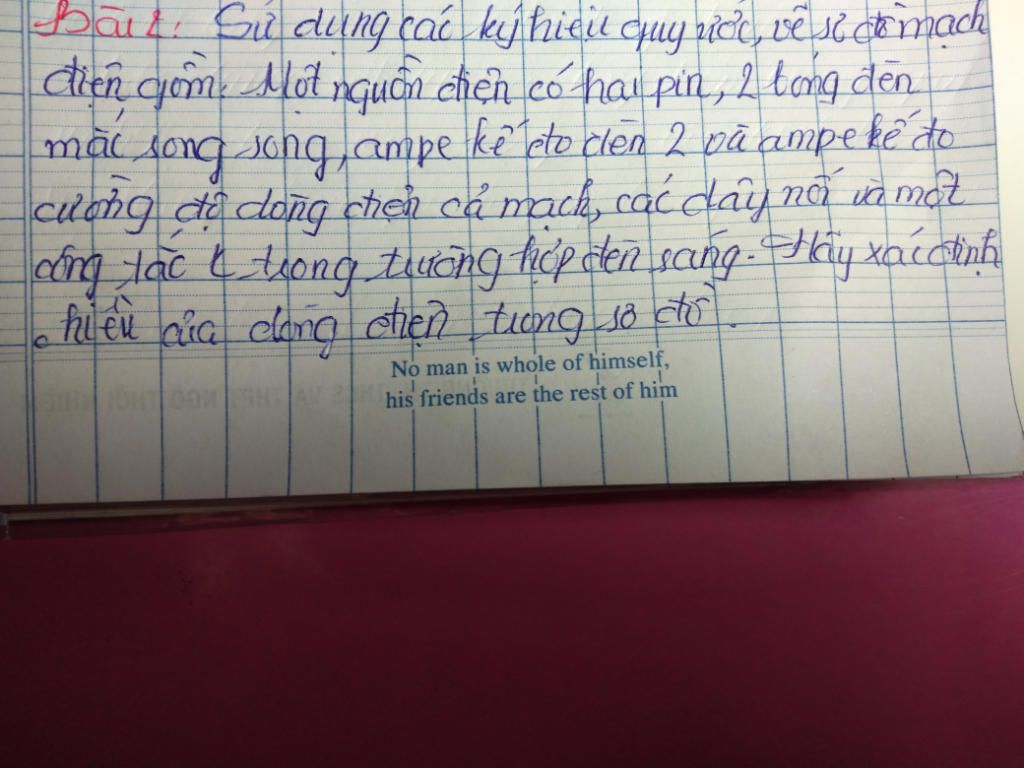 Bài 2: Sử dụng các ký hiệu quy ước, vẽ sơ đồ mạch
điện gồm: Một nguồn điện có hai pin, 2 bóng đèn
mắc song song, ampe kế đo đèn 2 và ampe kế đo
cường độ dòng điện cả mạch, các dây nối và một
công tắc K trong trường hợp đèn sáng. Hãy xác định
chiều của dòng điện trong sơ đồ.
No man is whole of himself,
his friends are the rest of him